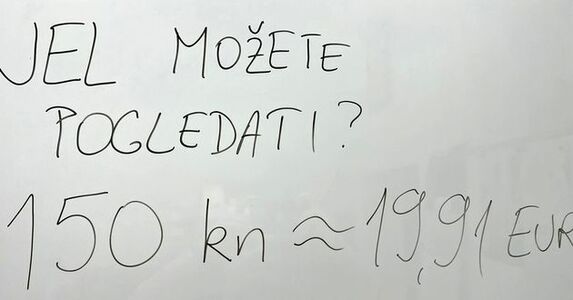 JEL MOŽETE
POGLEDATI?
150 kn ≈ 19,91 EUR